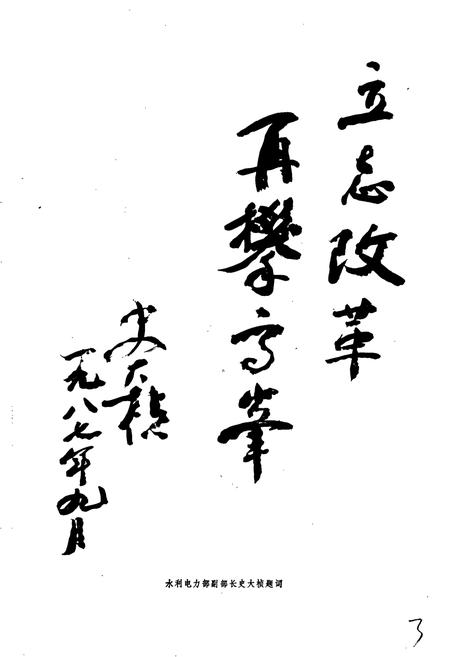 立志改革
再攀高峰
史大桢
一九八七年九月
水利电力部副部长史大桢题词
3